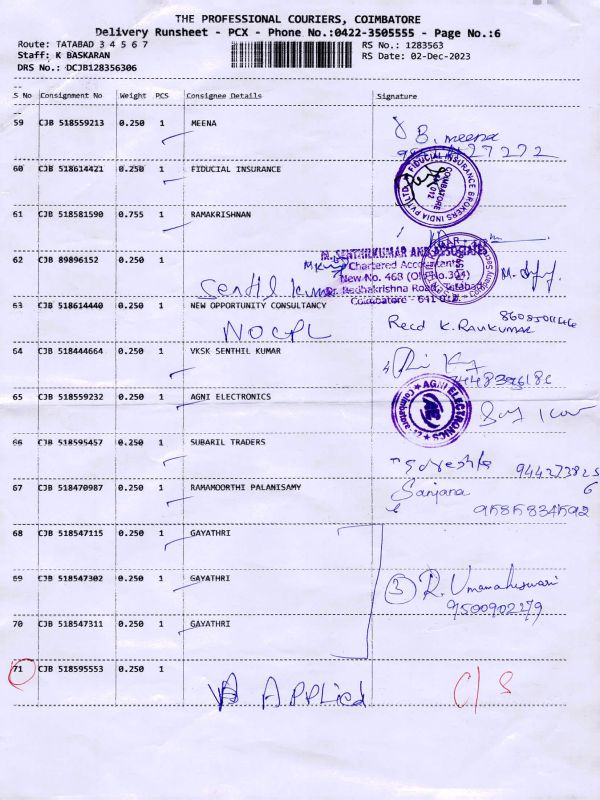 THE PROFESSIONAL COURIERS, COIMBATORE
Delivery Runsheet - PCX - Phone No.:0422-3505555 - Page No.:6
Route: TATABAD 3 4 5 6 7 RS No.: 1283563
Staff: K BASKARAN RS Date: 02-Dec-2023
DRS No.: DCJB128356306
S No Consignment No Weight PCS Consignee Details Signature
59 CJB 518559213 0.250 1 MEENA B. meena
27272
60 CJB 518614421 0.250 1 FIDUCIAL INSURANCE
FIDUCIAL INSURANCE BROKERS INDIA PVT LTD
COIMBATORE
61 CJB 518581590 0.755 1 RAMAKRISHNAN
62 CJB 89896152 0.250 1
M. SENTHILKUMAR AND ASSOCIATES
Chartered Accountants
New No. 468 (Old No.304)
Dr. Radhakrishna Road, Tatabad
Coimbatore - 641 012.
Senthil Kumar
63 CJB 518614440 0.250 1 NEW OPPORTUNITY CONSULTANCY
NOCPL
Recd K. RAVIKUMAR
64 CJB 518444664 0.250 1 VKSK SENTHIL KUMAR
65 CJB 518559232 0.250 1 AGNI ELECTRONICS
AGNI ELECTRONICS
66 CJB 518595457 0.250 1 SUBARIL TRADERS
67 CJB 518470987 0.250 1 RAMAMOORTHI PALANISAMY Sanjana
9585834592
68 CJB 518547115 0.250 1 GAYATHRI
69 CJB 518547302 0.250 1 GAYATHRI 3 R. Umamaheswari
9500902279
70 CJB 518547311 0.250 1 GAYATHRI
71 CJB 518595553 0.250 1
Applied C/S